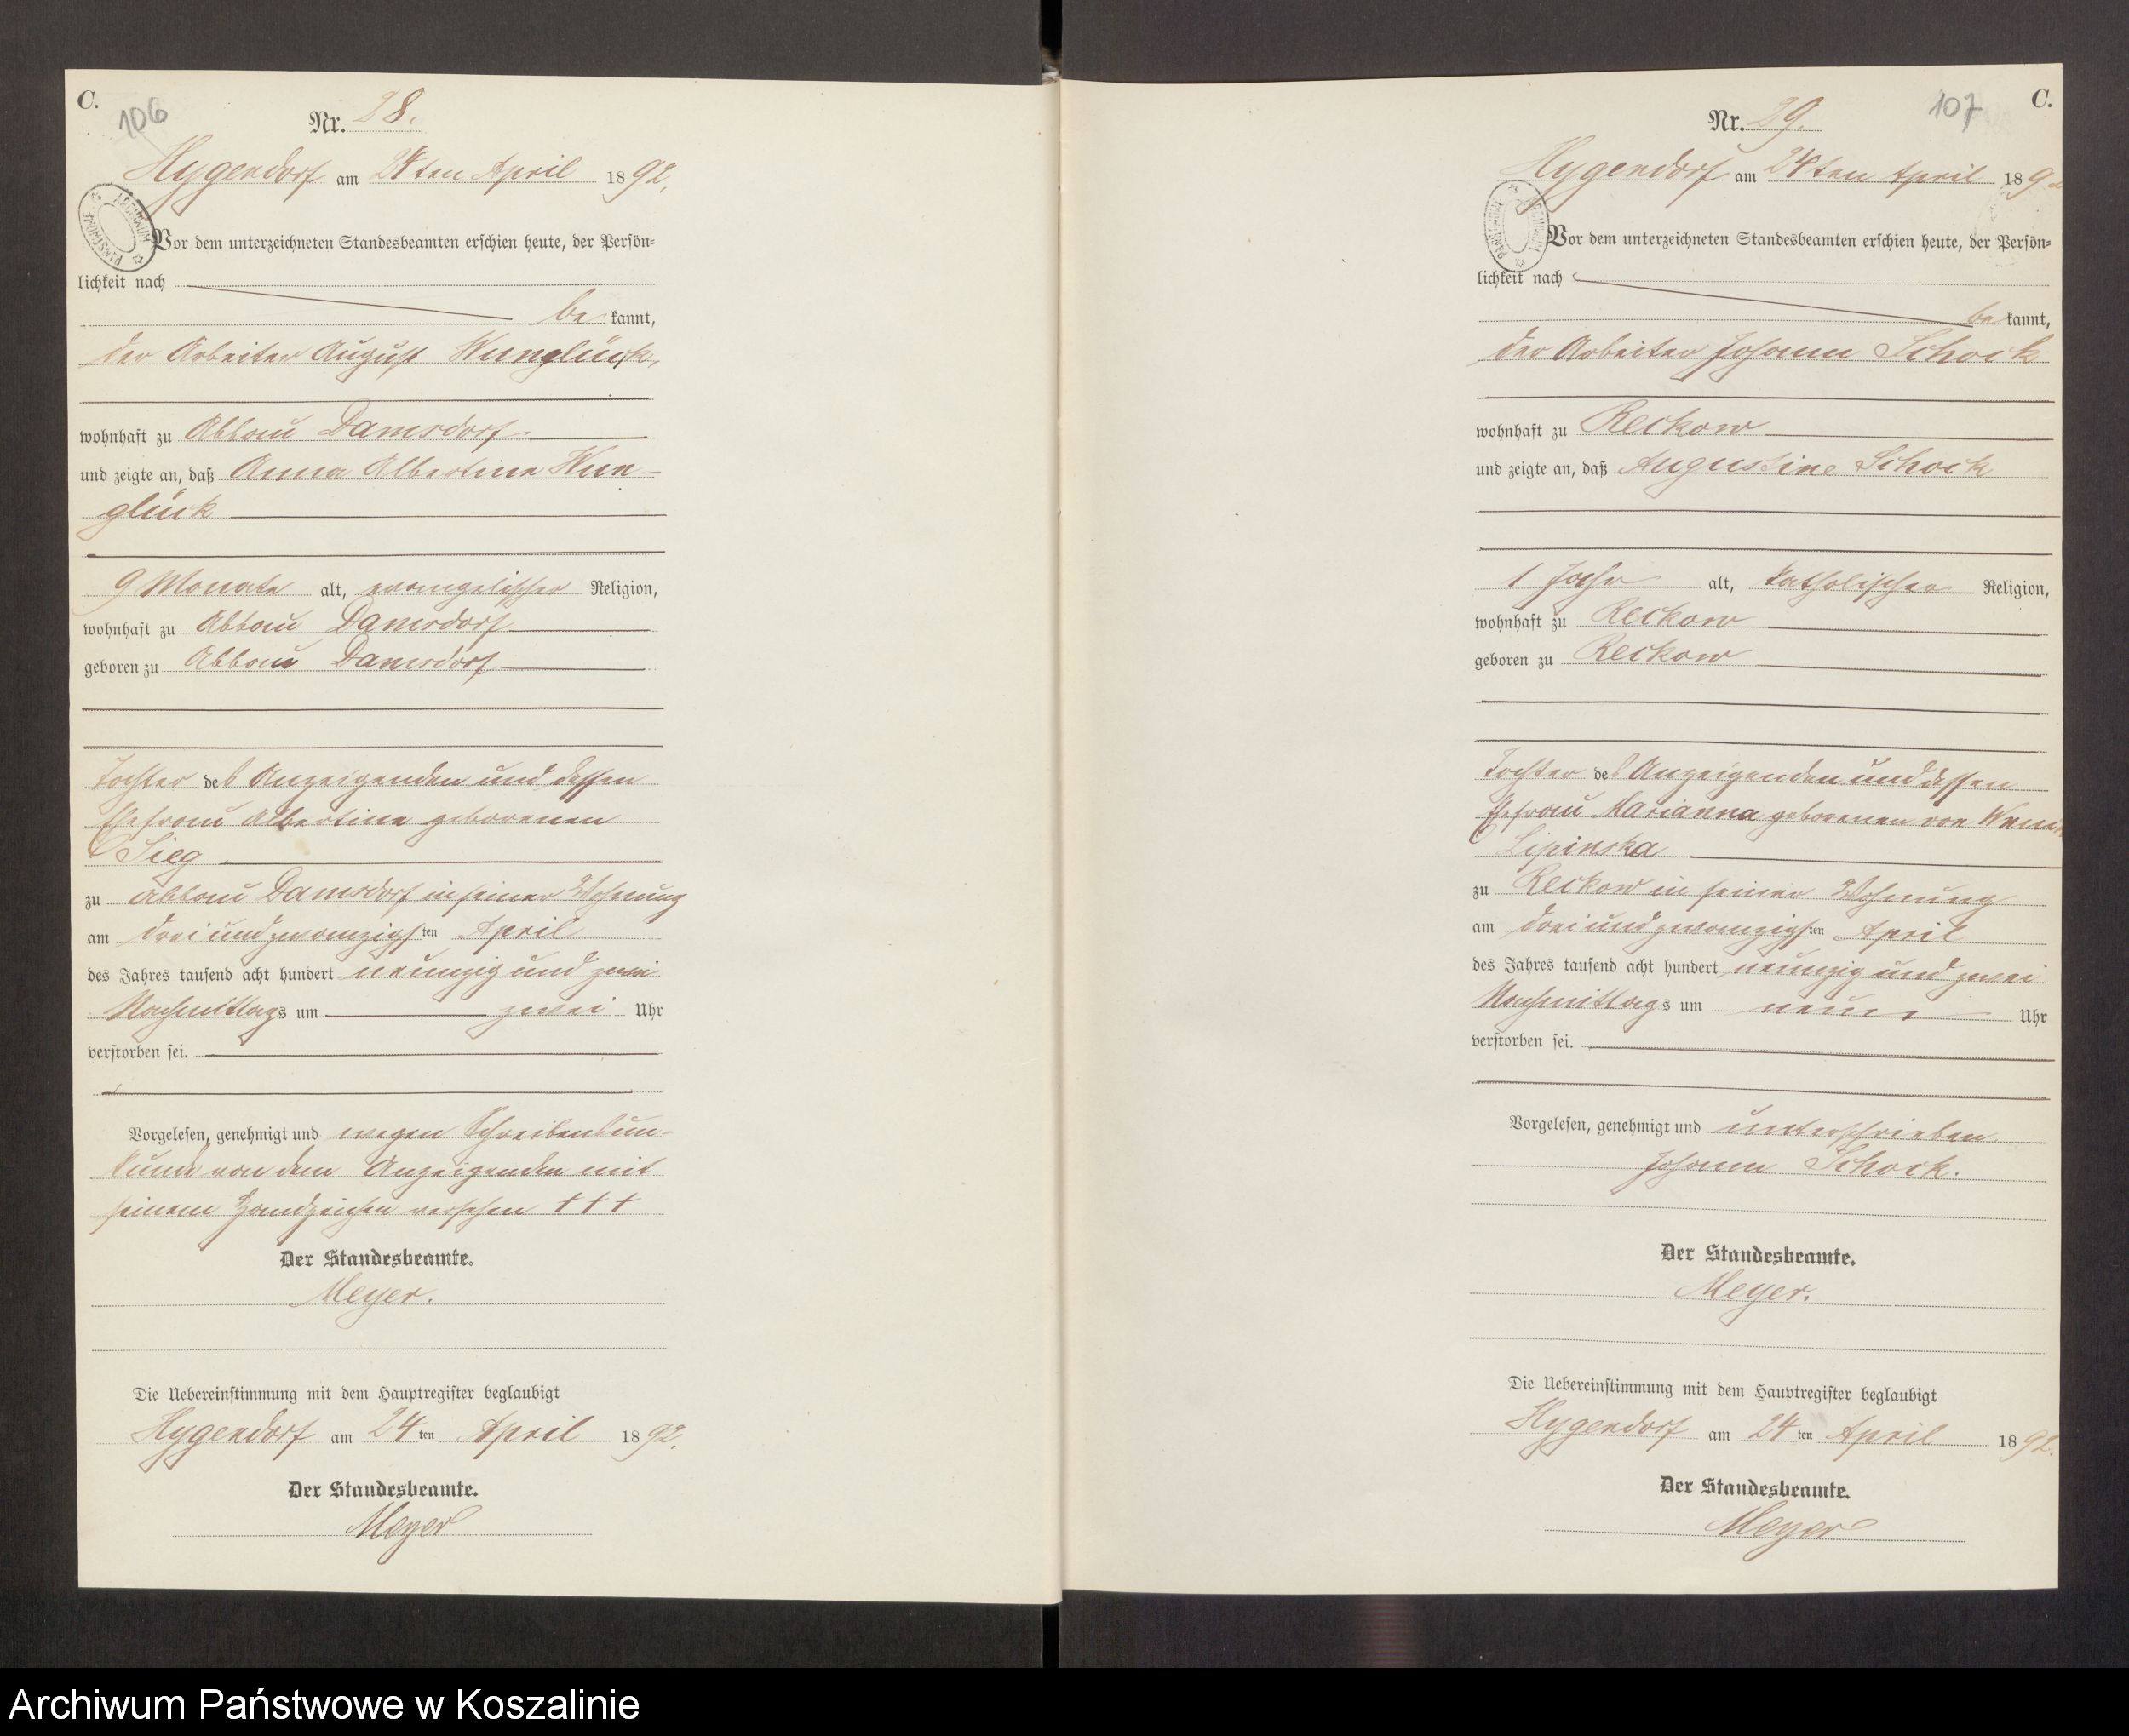 C.
106
Nr. 28.
Hygendorf am 24ten April 1892.
Vor dem unterzeichneten Standesbeamten erschien heute, der Persön-
lichkeit nach
bekannt,
der Arbeiter August Wunglück,
wohnhaft zu Abbau Damsdorf
und zeigte an, daß Anna Albertine Wun-
glück
9 Monate alt, evangelischer Religion,
wohnhaft zu Abbau Damsdorf
geboren zu Abbau Damsdorf
Tochter des Anzeigenden und dessen
Ehefrau Albertine geborenen
Sieg
zu Abbau Damsdorf in seiner Wohnung
am dreiundzwanzigsten April
des Jahres tausend acht hundert neunzig und zwei
Nachmittags um zwei Uhr
verstorben sei.
Vorgelesen, genehmigt und wegen Schreibensun-
kunde von dem Anzeigenden mit
seinem Handzeichen versehen +++
Der Standesbeamte.
Meyer.
Die Uebereinstimmung mit dem Hauptregister beglaubigt
Hygendorf am 24ten April 1892.
Der Standesbeamte.
Meyer
107
C.
Nr. 29.
Hygendorf am 24ten April 189
Vor dem unterzeichneten Standesbeamten erschien heute, der Persön-
lichkeit nach
bekannt,
der Arbeiter Johann Schock
wohnhaft zu Reckow
und zeigte an, daß Augustine Schock
1 Jahr alt, katholischer Religion,
wohnhaft zu Reckow
geboren zu Reckow
Tochter des Anzeigenden und dessen
Ehefrau Marianna geborenen von
Lipinska
zu Reckow in seiner Wohnung
am dreiundzwanzigsten April
des Jahres tausend acht hundert neunzig und zwei
Nachmittags um neun Uhr
verstorben sei.
Vorgelesen, genehmigt und unterschrieben
Johann Schock.
Der Standesbeamte.
Meyer.
Die Uebereinstimmung mit dem Hauptregister beglaubigt
Hygendorf am 24ten April 1892.
Der Standesbeamte.
Meyer
Archiwum Państwowe w Koszalinie